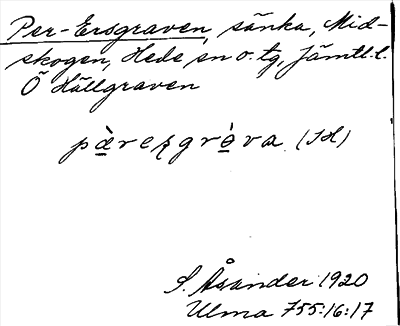 Per-Ersgraven, sänka, Mid-
skogen, Hede sn o. tg, Jämtl. l.
Ö Hällgraven
pàrezgròva (JH)
S. Åsander 1920
Ulma 755:16:17